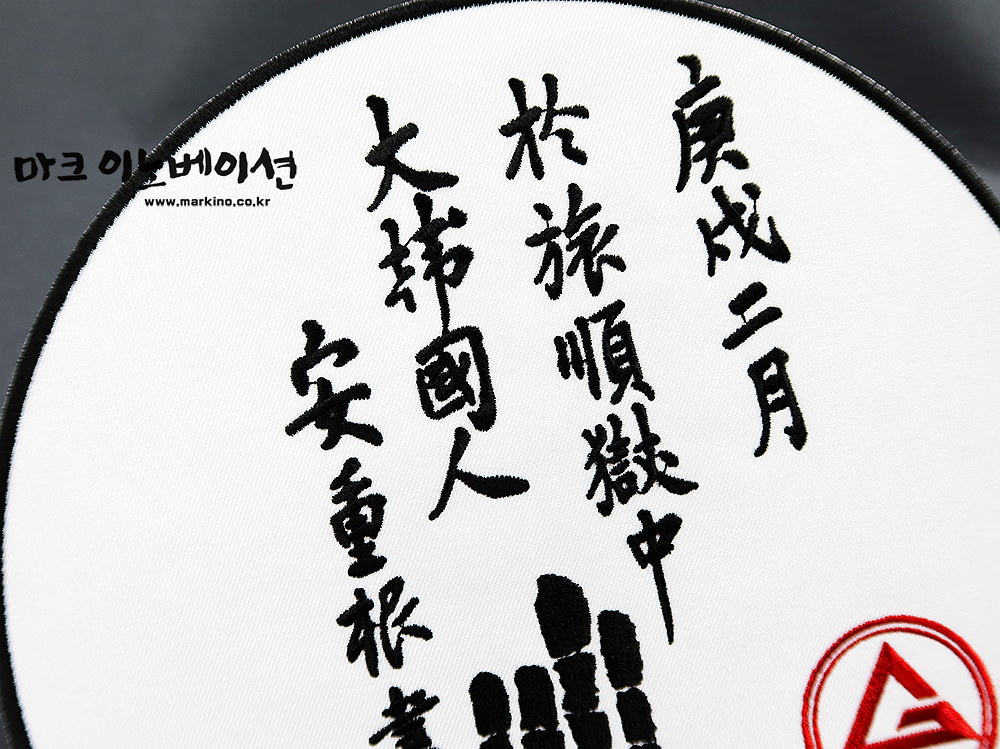 庚戌二月
於旅順獄中
大韓國人
安重根書
마크 이노베이션
www.markino.co.kr